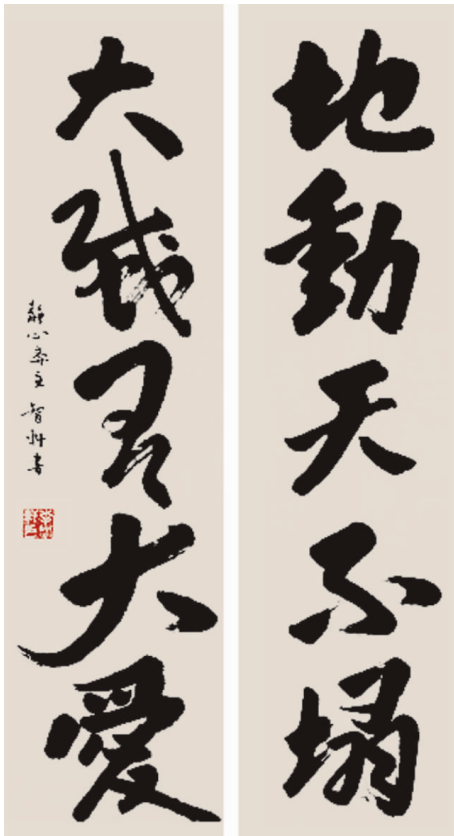 地動天不塌
大烖有大愛
靜心斋主 智科書